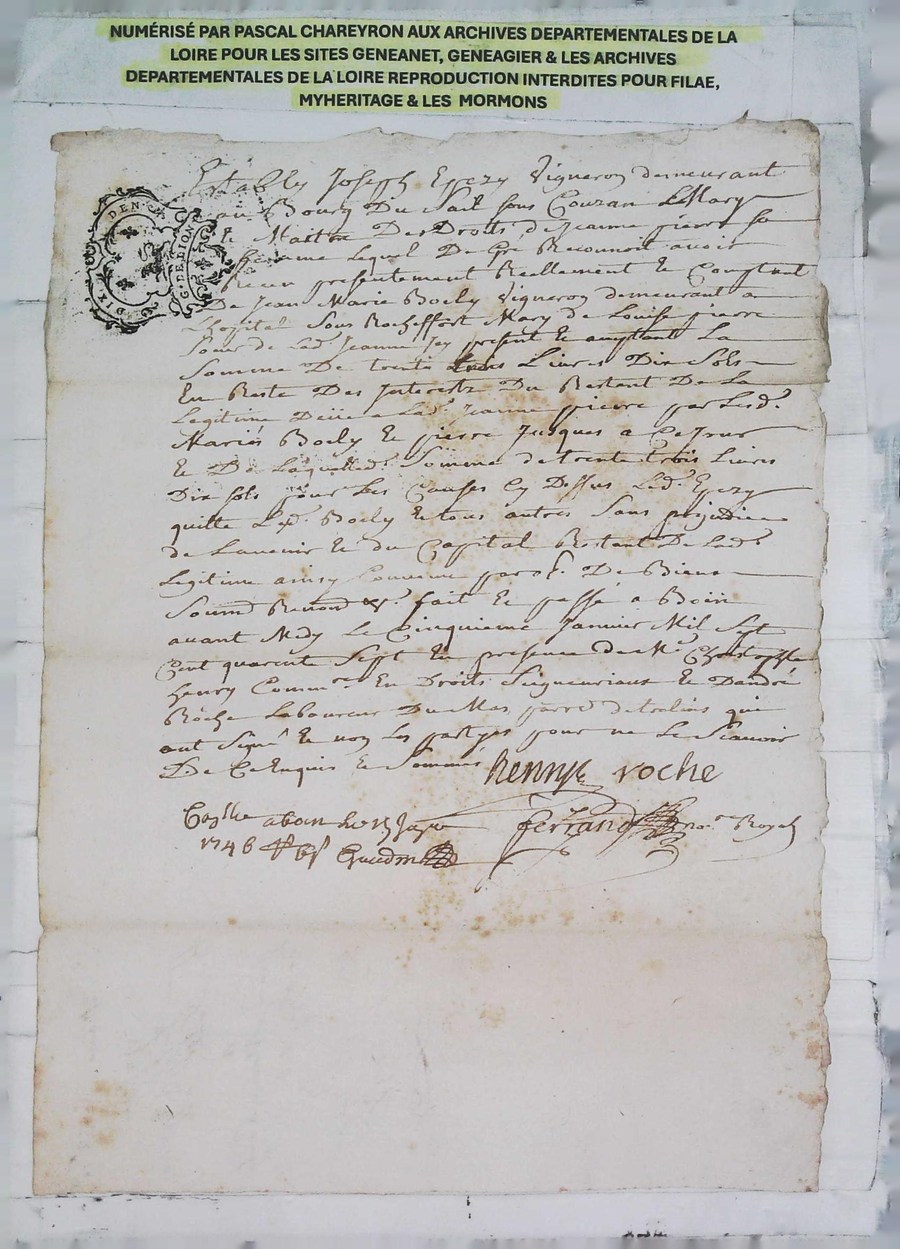 NUMÉRISÉ PAR PASCAL CHAREYRON AUX ARCHIVES DEPARTEMENTALES DE LA
LOIRE POUR LES SITES GENEANET, GENEAGIER & LES ARCHIVES
DEPARTEMENTALES DE LA LOIRE REPRODUCTION INTERDITES POUR FILAE,
MYHERITAGE & LES MORMONS
Estably Joseph Epezy Vigneron demeurant
au Bourg Du Sail sous Couzan Mary
et Maitre Des Droits de Jeanne pierre sa
femme Lequel De Gré Reconnoit avoir
Receu presentement Reellement et Comptant
De Jean Marie Boely Vigneron demeurant a
Lhopital Sous Rocheffort Mary de Louise pierre
Soeur de lad. Jeanne Icy present et acceptant La
Somme De trente trois Livres Dix Sols
En Reste Des Interestz Du Restant De La
Legitime Deüe a Lad. Jeanne pierre par Lesd.
Mariés Boely et pierre Jusques a Ce Jour
et De Laquelle d. Somme de trente trois Livres
Dix sols pour Les Causes Cy Dessus Led. Epezy
quitte Led. Boely et tous autres Sans prejudice
de Lavenir et du Capital Restant De Lad.
Legitime ainsy Convenu par De Biens
Soumis Renon &. fait et passé a Boën
avant Midy Le Cinquieme Janvier Mil Sept
Cent quarente Sept En presence de Me. Christophle
henry Commre. En Droits Seigneuriaux et Dandré
Roche Laboureur Du Mas parr. de trelins qui
ont Signé et non les partyes pour ne Le Scavoir
De Ce Enquis et Sommés
henry roche
ferrand no.re Royal
a boen le 15 Janv